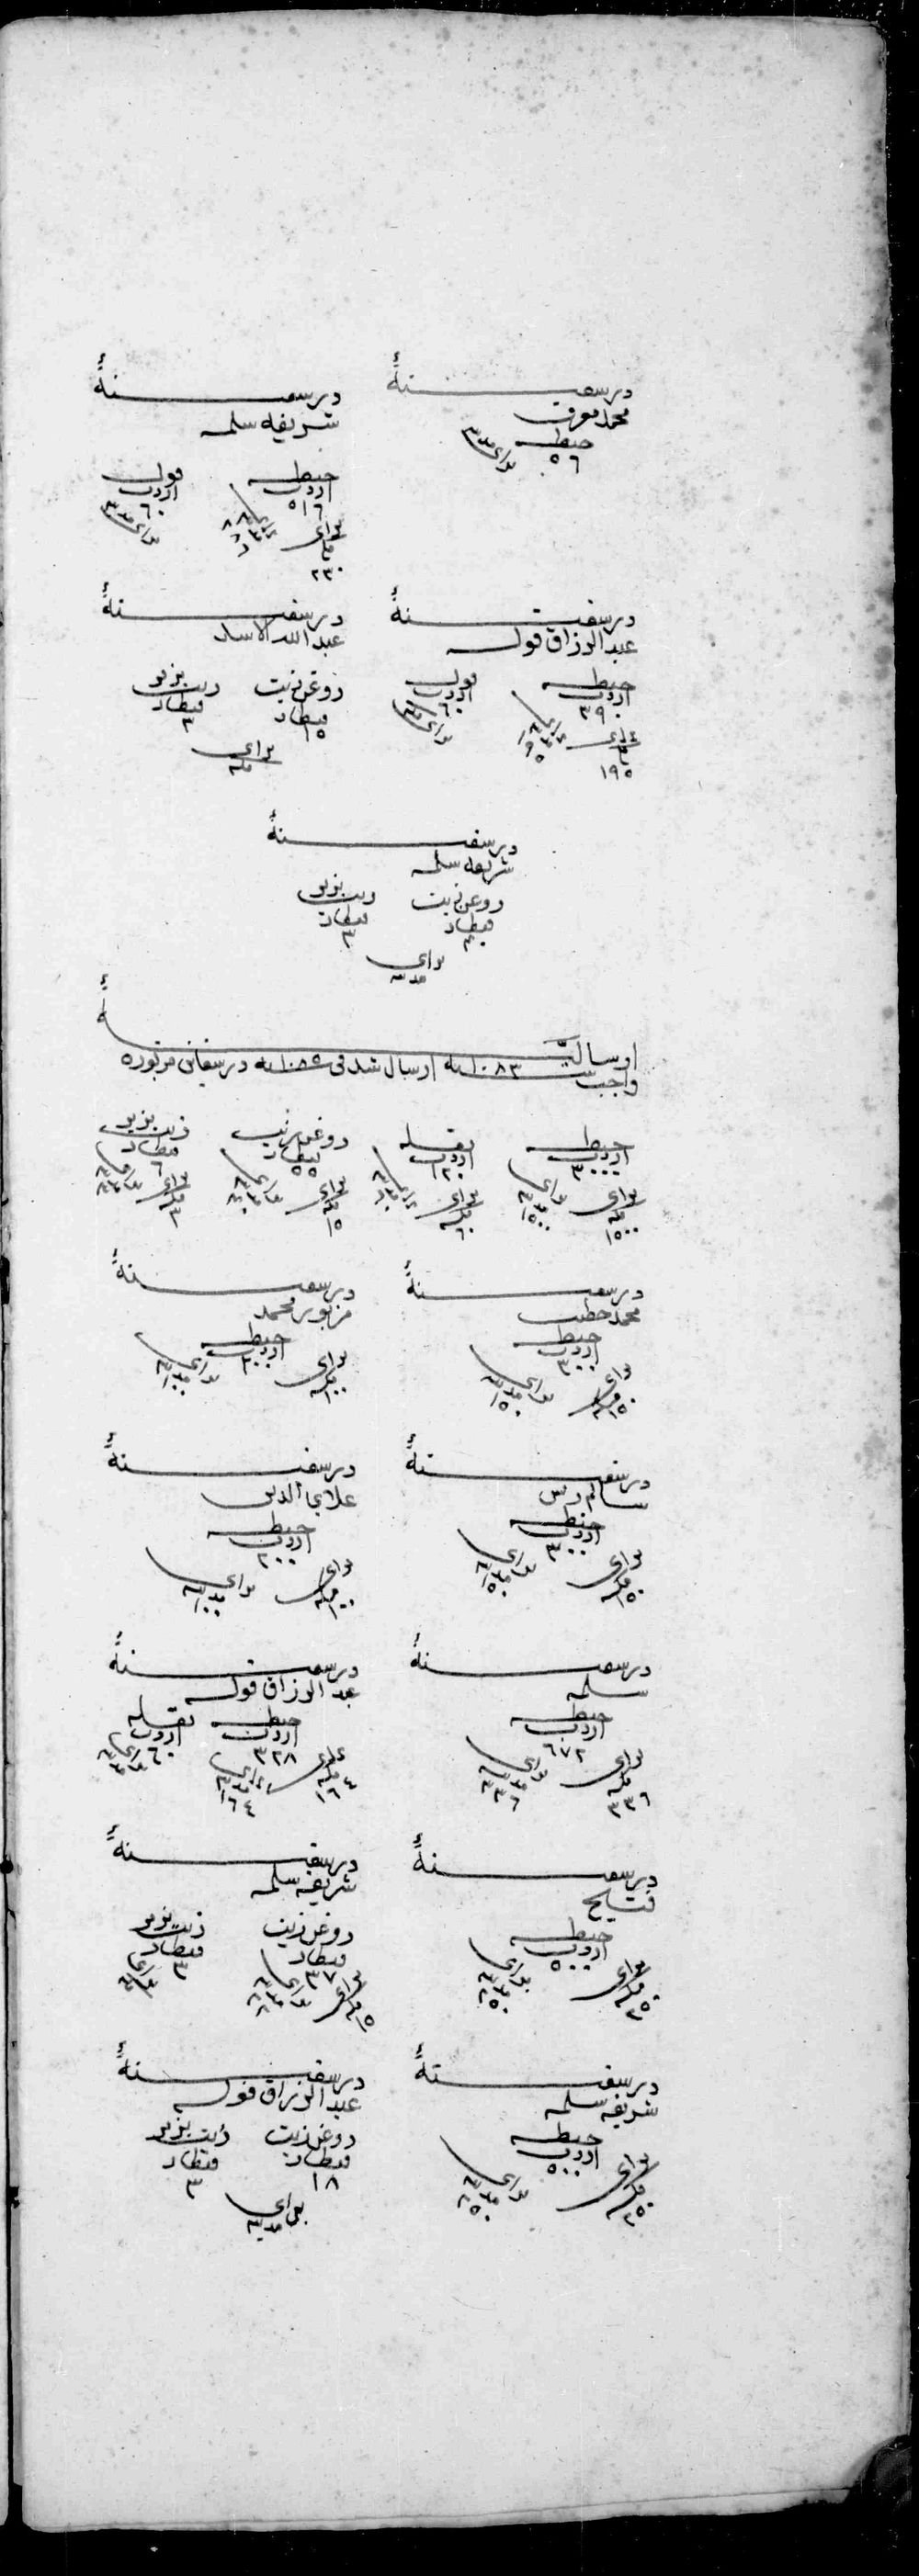 در سفينة
محمد معرف
حنطه
٥٦
برای مدينه
در سفينة
شريفه سلمه
حنطه
اردب
٥١٦
برای مكه
٢٣٠
برای مدينه
فول
اردب
٦٠
برای مدينه
در سفينة
عبد الرزاق قوله
حنطه
اردب
٣٩٠
برای مكه
١٩٥
برای مدينه
١٩٥
فول
اردب
٦٠
برای
در سفينة
عبد الله
روغن زيت
قنطار
١٥
زيت بزير
قنطار
٣
برای
مكه
در سفينة
شريفه سلمه
روغن زيت
قنطار
زيت بزير
قنطار
٣
برای
مدينه
ارساليه
واجب سنه ١٠٨٣ ارسال شد فی سنه در سفاين مزبوره
حنطه
اردب
٣٠٠٠
برای مكه
١٥٠٠
برای مدينه
١٥٠٠
بقله
اردب
١٢٠
برای مكه
٦٠
برای مدينه
٦٠
روغن زيت
قنطار
٥٥
برای مكه
١٥
برای مدينه
٤٠
زيت بزير
قنطار
٦
برای مكه
٣
برای مدينه
٣
در سفينة
محمد خطيب
حنطه
اردب
٣٠٠
برای مكه
١٥٠
برای مدينه
١٥٠
در سفينة
مزبور محمد
حنطه
اردب
٢٠٠
برای مكه
١٠٠
برای مدينه
١٠٠
در سفينة
سالم ريس
حنطه
اردب
٣٠٠
برای مكه
١٥٠
برای مدينه
١٥٠
در سفينة
علای الدين
حنطه
اردب
٢٠٠
برای مكه
١٠٠
برای مدينه
١٠٠
در سفينة
سلمه
حنطه
اردب
٦٧٢
برای مكه
٣٣٦
برای مدينه
٣٣٦
در سفينة
عبد الرزاق قوله
حنطه
اردب
٣٢٨
برای مكه
١٦٤
برای مدينه
١٦٤
بقله
اردب
٦٠
برای مدينه
در سفينة
فتيح
حنطه
اردب
٥٠٠
برای مكه
٢٥٠
برای مدينه
٢٥٠
در سفينة
شريفه سلمه
روغن زيت
قنطار
٣٧
برای مكه
١٥
برای مدينه
٢٢
زيت بزير
قنطار
٣
برای مكه
در سفينة
شريفه سلمه
حنطه
اردب
٥٠٠
برای مكه
٢٥٠
برای مدينه
٢٥٠
در سفينة
عبد الرزاق قوله
روغن زيت
قنطار
١٨
زيت بزير
قنطار
٣
برای مدينه